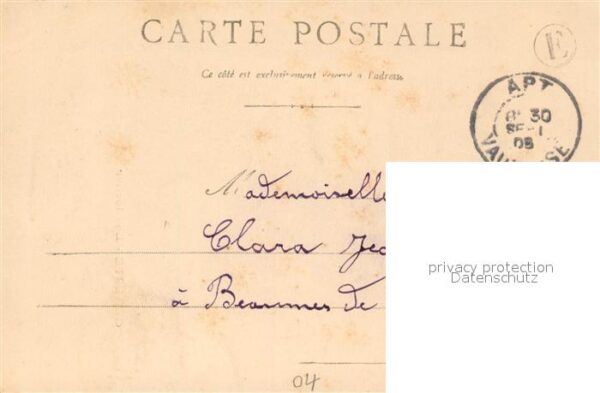 CARTE POSTALE
E
Ce côté est exclusivement réservé à l'adresse
APT
30
SEPT
08
VAUCLUSE
Mademoiselle
Clara Jea
à Beaumes de
privacy protection
Datenschutz
04